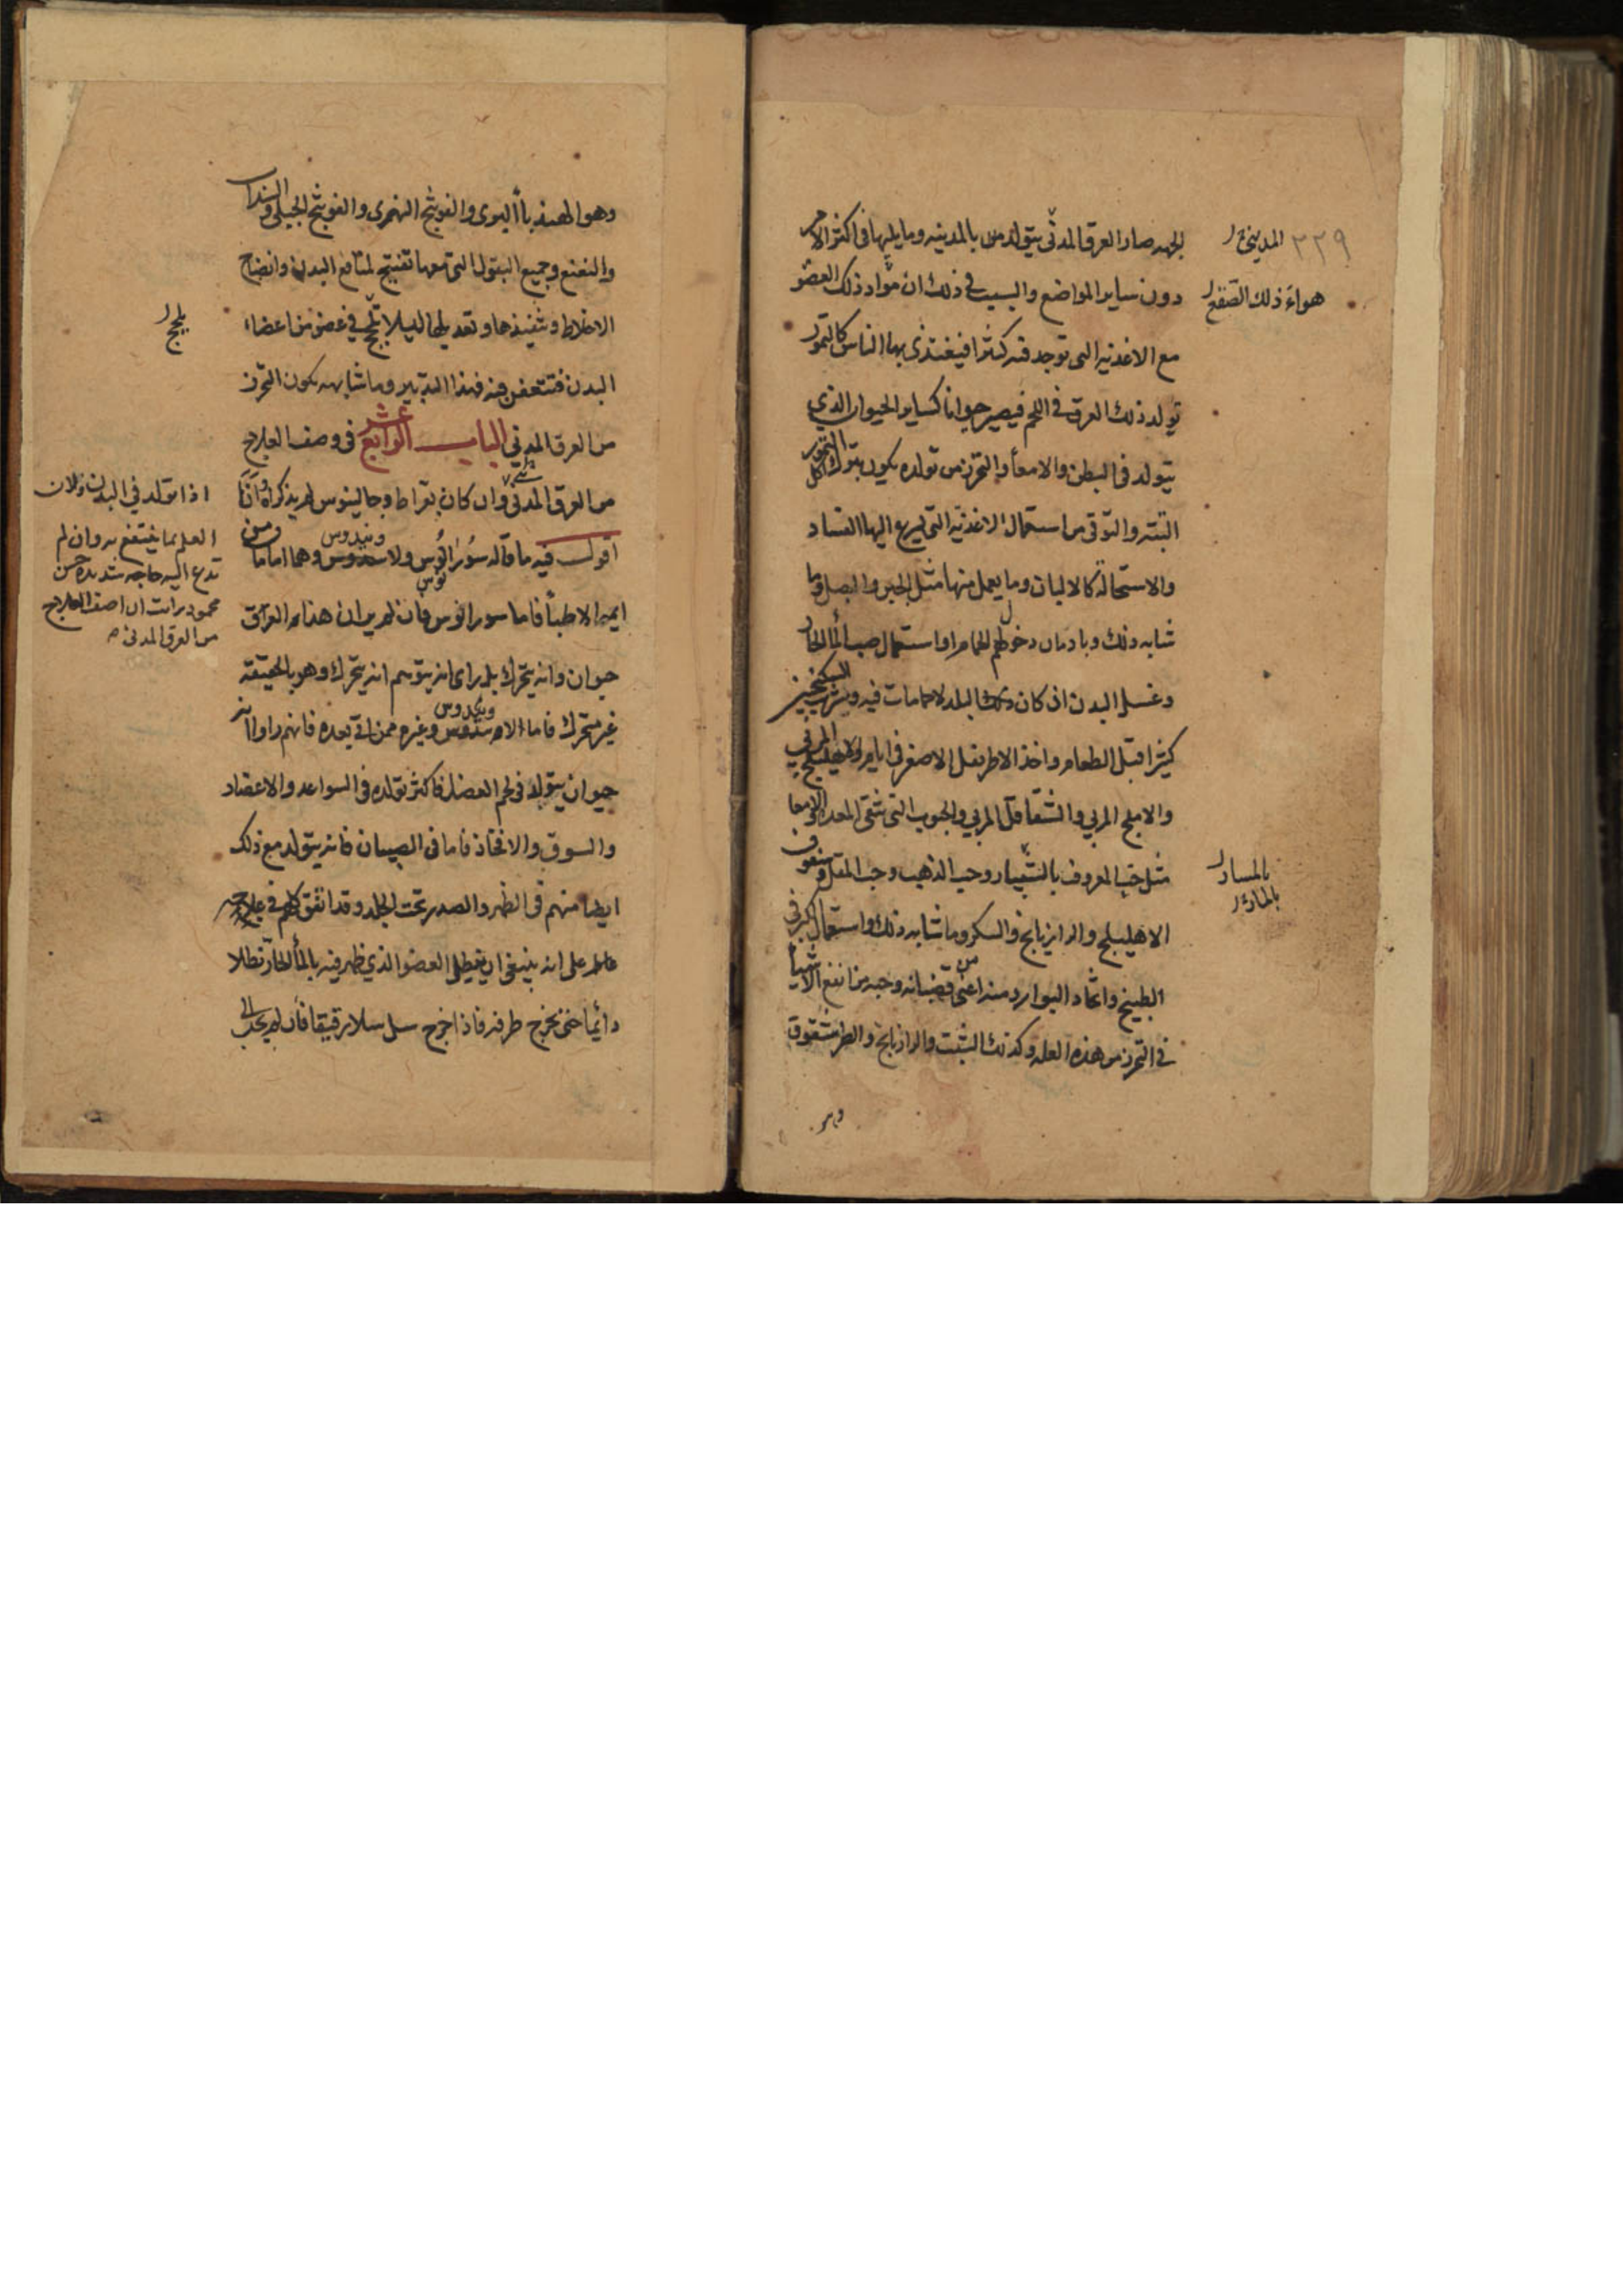 ٣٢٩
المديني
الجهه صار العرق المدني يتولد من بالمدينه وما يليها في اكثر الامر
هواء ذلك الصقع
دون ساير المواضع والسبب في ذلك ان مواد ذلك العضو
مع الاغذيه التي توجد فيه كثيرا فيغتذي بها الناس كالتمور
تولد ذلك العرق في اللحم فيصير حيوانا كساير الحيوان الذي
يتولد في البطن والامعأ والتحرز من تولده يكون بترك اكل التمور
البته والتوقي من استعمال الاغذيه التي يسرع اليها الفساد
والاستحاله كالالبان وما يعمل منها مثل الجبن والبصل وما
شابه ذلك وبادمان دخول الحمام او استعمال صب المأ الحار
وغسل البدن ان كان ذلك البلد لا حمامات فيه وبشرب السكنجبين
كثيرا قبل الطعام واخذ الاطريفل الاصغر في ايام والاهليلج المربي
والاملج المربي والشقاقل المربي والحبوب التي تنقي المعده والامعا
مثل حب المعروف بالشبيار وحب الذهب وحب المقل وسفوف
الاهليلج والرازيانج والسكر وما شابه ذلك واستعمال الكرفس
الطبيخ واتخاذ البوارد منه اعني من قضبانه وحبه من انفع الاشيأ
في التحرز من هذه العله وكذلك الشبت والرازيانج والطرشقوق
وهو
وهو الهندبا البري والفوتنج النهري والفوتنج الجبلي والسذاب
والنعنع وجميع البقول التي معها تفتيح لمنافع البدن وانضاج
الاخلاط وتنفيذها وتعديلها ليلا تلج في عضو من اعضاء
يلحج
البدن فتتعفن فيه فبهذا التدبير وما شابهه يكون التحرز
من العرق المدني الباب الرابع عشر في وصف العلاج
من العرق المدني وان كان بقراط وجالينوس لم يذكراه وانا
اقول فيه ما قاله سورانوس ولاونيدوس وهما اماما من
ايمه الاطبأ فاما سورانوس فان لم ير ان هذا العرق
حيوان وانه يتحرك بل راى انه يتوهم انه يتحرك وهو بالحقيقه
غير متحرك فاما لاونيدوس وغيره ممن اتى بعده فانهم راوا انه
حيوان يتولد في لحم العضل فاكثر تولده في السواعد والاعضاد
والسوق والافخاذ فاما في الصبيان فانه يتولد مع ذلك
ايضا منهم في الظهر والصدر تحت الجلد وقد اتفق كلهم في علاجه
على انه ينبغي ان ينطل العضو الذي ظهر فيه بالمأ الحار نطلا
دائما حتى يخرج طرفه فاذا خرج سل سلا رقيقا فان لم يجب الى
اذا تولد في البدن ولان
العلم بما ينتفع به وان لم
تدع اليه حاجه شديده حسن
محمود رايت ان اصف العلاج
من العرق المدني